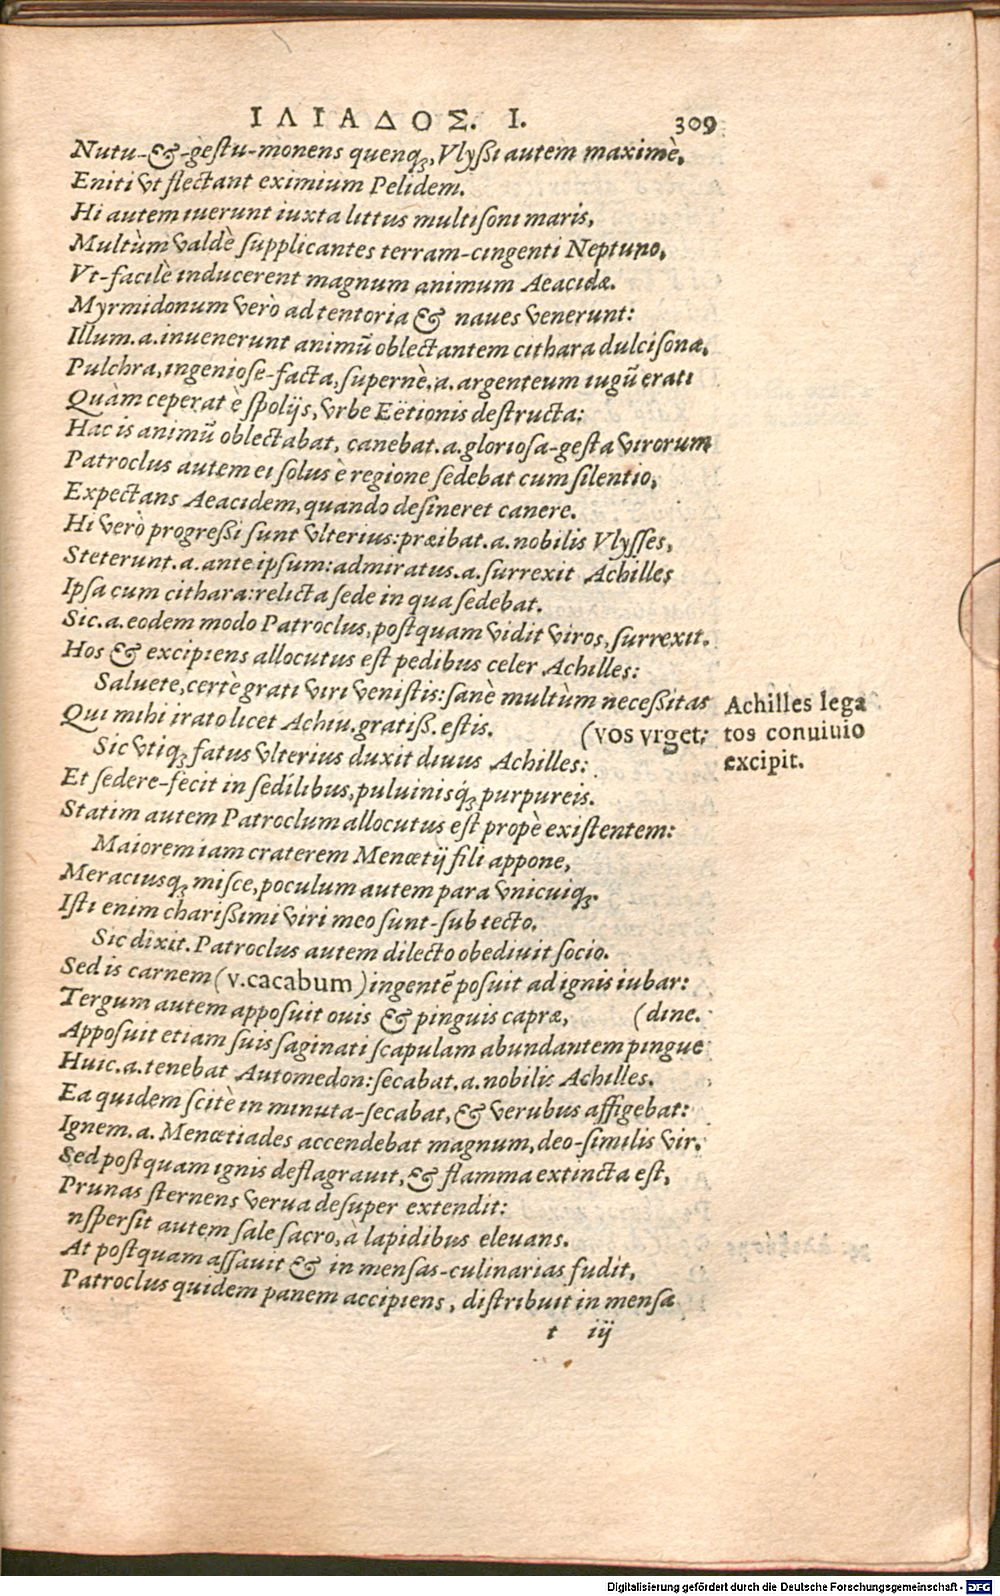 ΙΛΙΑΔΟΣ. Ι. 309
Nutu-&-gestu-monens quenq;, Vlyßi autem maximè,
Eniti vt flectant eximium Pelidem.
Hi autem iuerunt iuxta littus multisoni maris,
Multùm valdè supplicantes terram-cingenti Neptuno,
Vt-facilè inducerent magnum animum Aeacidæ.
Myrmidonum verò ad tentoria & naues venerunt:
Illum.a.inuenerunt animũ oblectantem cithara dulcisona,
Pulchra, ingeniose-facta, supernè.a.argenteum iugũ erat:
Quàm ceperat è spolijs, vrbe Eëtionis destructa:
Hac is animũ oblectabat, canebat.a.gloriosa-gesta virorum
Patroclus autem ei solus è regione sedebat cum silentio,
Expectans Aeacidem, quando desineret canere.
Hi verò progreßi sunt vlterius: præibat.a.nobilis Vlysses,
Steterunt.a.ante ipsum: admiratus.a.surrexit Achilles
Ipsa cum cithara: relicta sede in qua sedebat.
Sic.a.eodem modo Patroclus, postquam vidit viros, surrexit.
Hos & excipiens allocutus est pedibus celer Achilles:
Saluete, certè grati viri venistis: sanè multùm neceßitas
Qui mihi irato licet Achiu.gratiß.estis. (vos vrget:
Achilles lega
tos conuiuio
excipit.
Sic vtiq; fatus vlterius duxit diuus Achilles:
Et sedere-fecit in sedilibus, puluinisq́; purpureis.
Statim autem Patroclum allocutus est propè existentem:
Maiorem iam craterem Menœtij fili appone,
Meraciusq; misce, poculum autem para vnicuiq;.
Isti enim charißimi viri meo sunt-sub tecto.
Sic dixit. Patroclus autem dilecto obediuit socio.
Sed is carnem (v.cacabum) ingentẽ posuit ad ignis iubar:
Tergum autem apposuit ouis & pinguis capræ, (dine.
Apposuit etiam suis saginati scapulam abundantem pingue
Huic.a.tenebat Automedon: secabat.a.nobilis Achilles.
Ea quidem scitè in minuta-secabat, & verubus affigebat:
Ignem.a.Menœtiades accendebat magnum, deo-similis vir.
Sed postquam ignis deflagrauit, & flamma extincta est,
Prunas sternens verua desuper extendit:
nspersit autem sale sacro, a lapidibus eleuans.
At postquam assauit & in mensas-culinarias fudit,
Patroclus quidem panem accipiens, distribuit in mensa
t iij
Digitalisierung gefördert durch die Deutsche Forschungsgemeinschaft - DFG